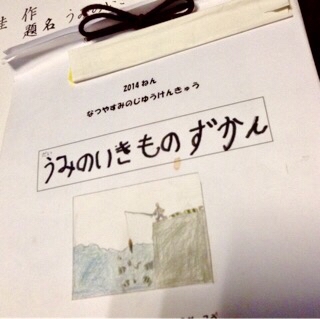 作
題名 うみの
2014 ねん
なつやすみのじゆうけんきゅう
うみのいきものずかん